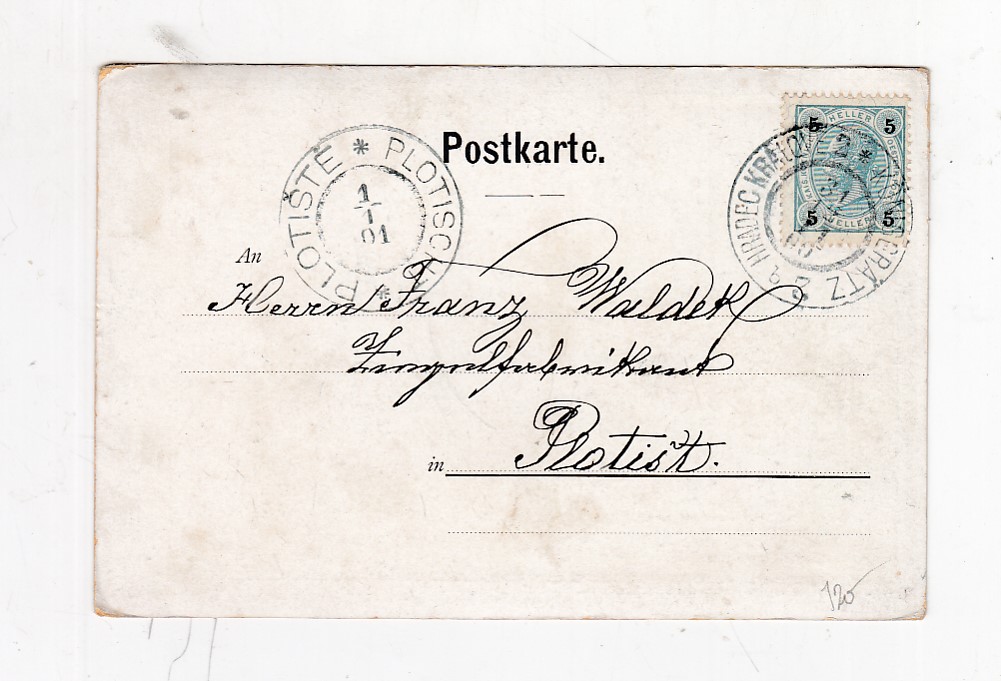 Postkarte.
5 HELLER 5
5 HELLER 5
HRADEC KRÁLOVÉ 2 * KÖNIGGRÄTZ 2
PLOTIŠTĚ * PLOTISCHT *
1
1
01
An
Herrn Franz Waldek
Ziegelfabrikant
in Plotišt.
120